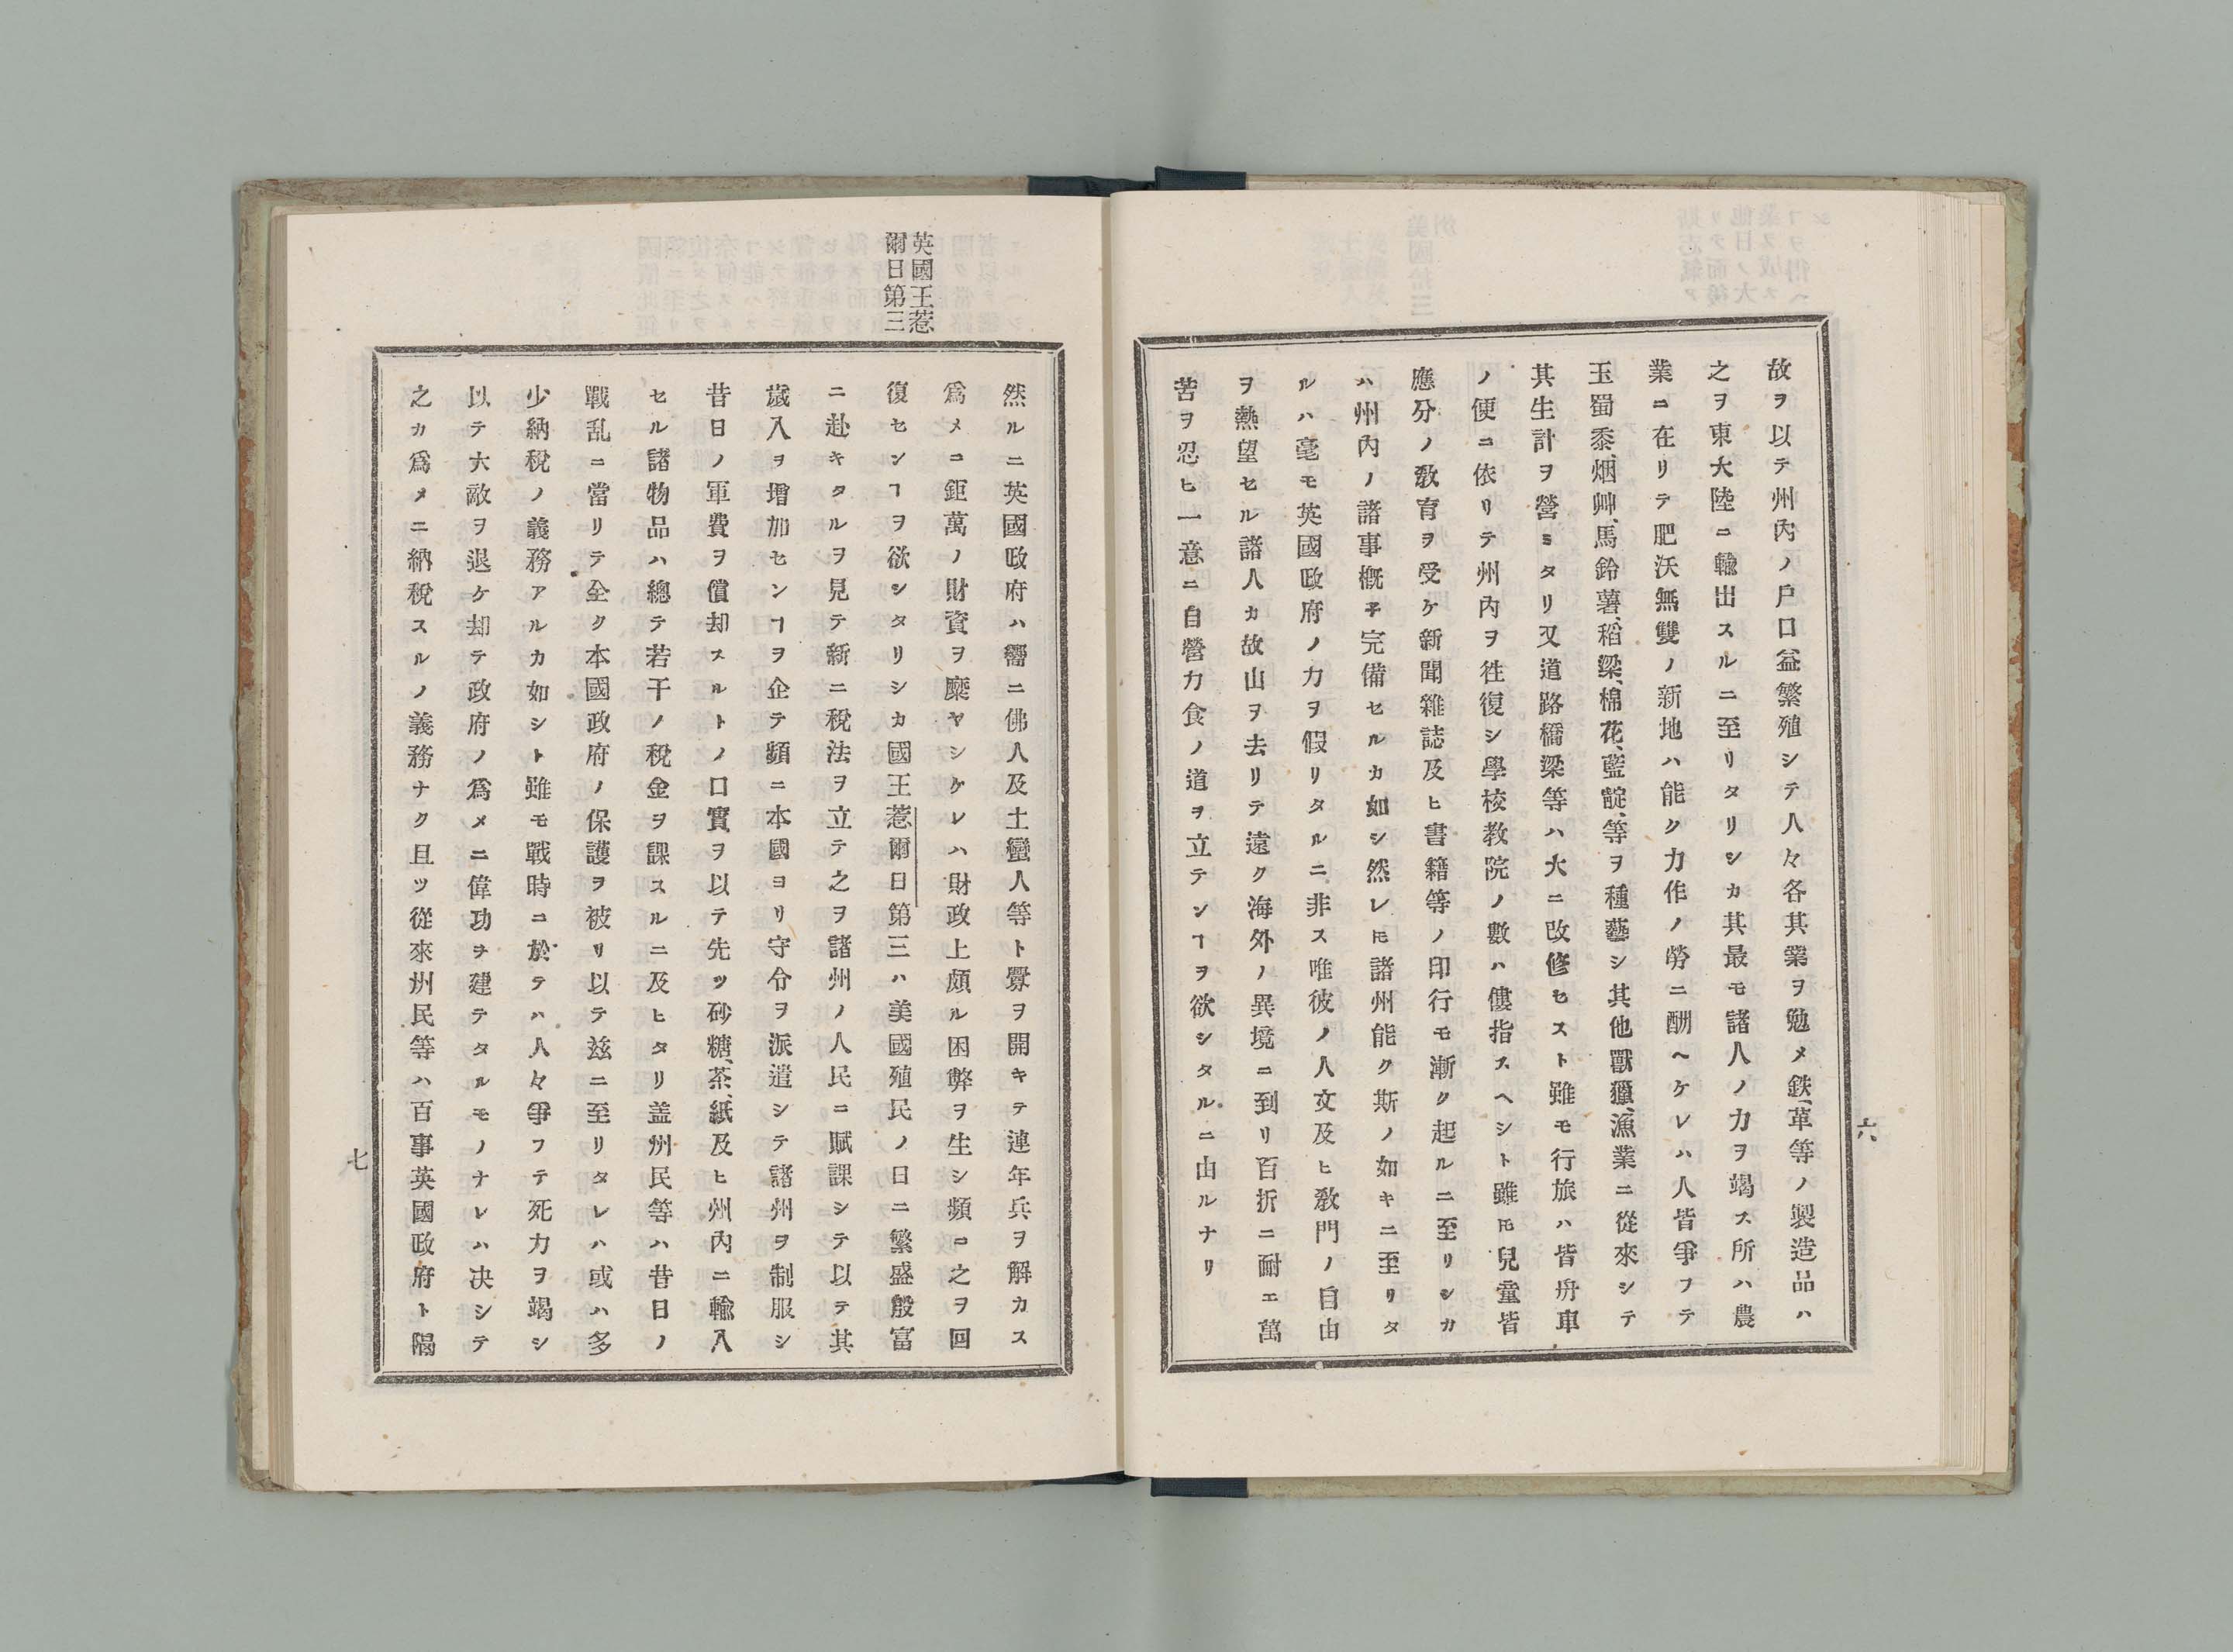 故ヲ以テ州內ノ戶口益繁殖シテ人々各其業ヲ勉メ鉄、革等ノ製造品ハ
之ヲ東大陸ニ輸出スルニ至リタリシカ其最モ諸人ノ力ヲ竭ス所ハ農
業ニ在リテ肥沃無雙ノ新地ハ能ク力作ノ勞ニ酬ヘケレハ人皆爭フテ
玉蜀黍、烟艸、馬鈴薯、稻粱、棉花、藍靛、等ヲ種藝シ其他獸獵、漁業ニ從來シテ
其生計ヲ營ミタリ又道路橋梁等ハ大ニ改修セスト雖モ行旅ハ皆舟車
ノ便ニ依リテ州內ヲ徃復シ學校教院ノ數ハ僂指スヘシト雖𪜈兒童皆
應分ノ敎育ヲ受ケ新聞雜誌及ヒ書籍等ノ印行モ漸ク起ルニ至リシカ
ハ州內ノ諸事概子完備セルカ如シ然レ𪜈諸州能ク斯ノ如キニ至リタ
ルハ毫モ英國政府ノ力ヲ假リタルニ非ス唯彼ノ人文及ヒ敎門ノ自由
ヲ熱望セル諸人カ故山ヲ去リテ遠ク海外ノ異境ニ到リ百折ニ耐エ萬
苦ヲ忍ヒ一意ニ自營力食ノ道ヲ立テンヿヲ欲シタルニ由ルナリ
六
英國王惹
爾日第三
然ルニ英國政府ハ嚮ニ佛人及土蠻人等ト釁ヲ開キテ連年兵ヲ解カス
爲メニ鉅萬ノ財資ヲ糜ヤシケレハ財政上頗ル困弊ヲ生シ頻ニ之ヲ回
復センヿヲ欲シタリシカ國王惹爾日第三ハ美國殖民ノ日ニ繁盛殷富
ニ赴キタルヲ見テ新ニ稅法ヲ立テ之ヲ諸州ノ人民ニ賦課シテ以テ其
歲入ヲ增加センヿヲ企テ頻ニ本國ヨリ守令ヲ派遣シテ諸州ヲ制服シ
昔日ノ軍費ヲ償却スルトノ口實ヲ以テ先ツ砂糖、茶、紙及ヒ州內ニ輸入
セル諸物品ハ總テ若干ノ稅金ヲ課スルニ及ヒタリ盖州民等ハ昔日ノ
戰乱ニ當リテ全ク本國政府ノ保護ヲ被リ以テ玆ニ至リタレハ或ハ多
少納稅ノ義務アルカ如シト雖モ戰時ニ於テハ人々爭フテ死力ヲ竭シ
以テ大敵ヲ退ケ却テ政府ノ爲メニ偉功ヲ建テタルモノナレハ决シテ
之カ爲メニ納稅スルノ義務ナク且ツ從來州民等ハ百事英國政府ト隔
七